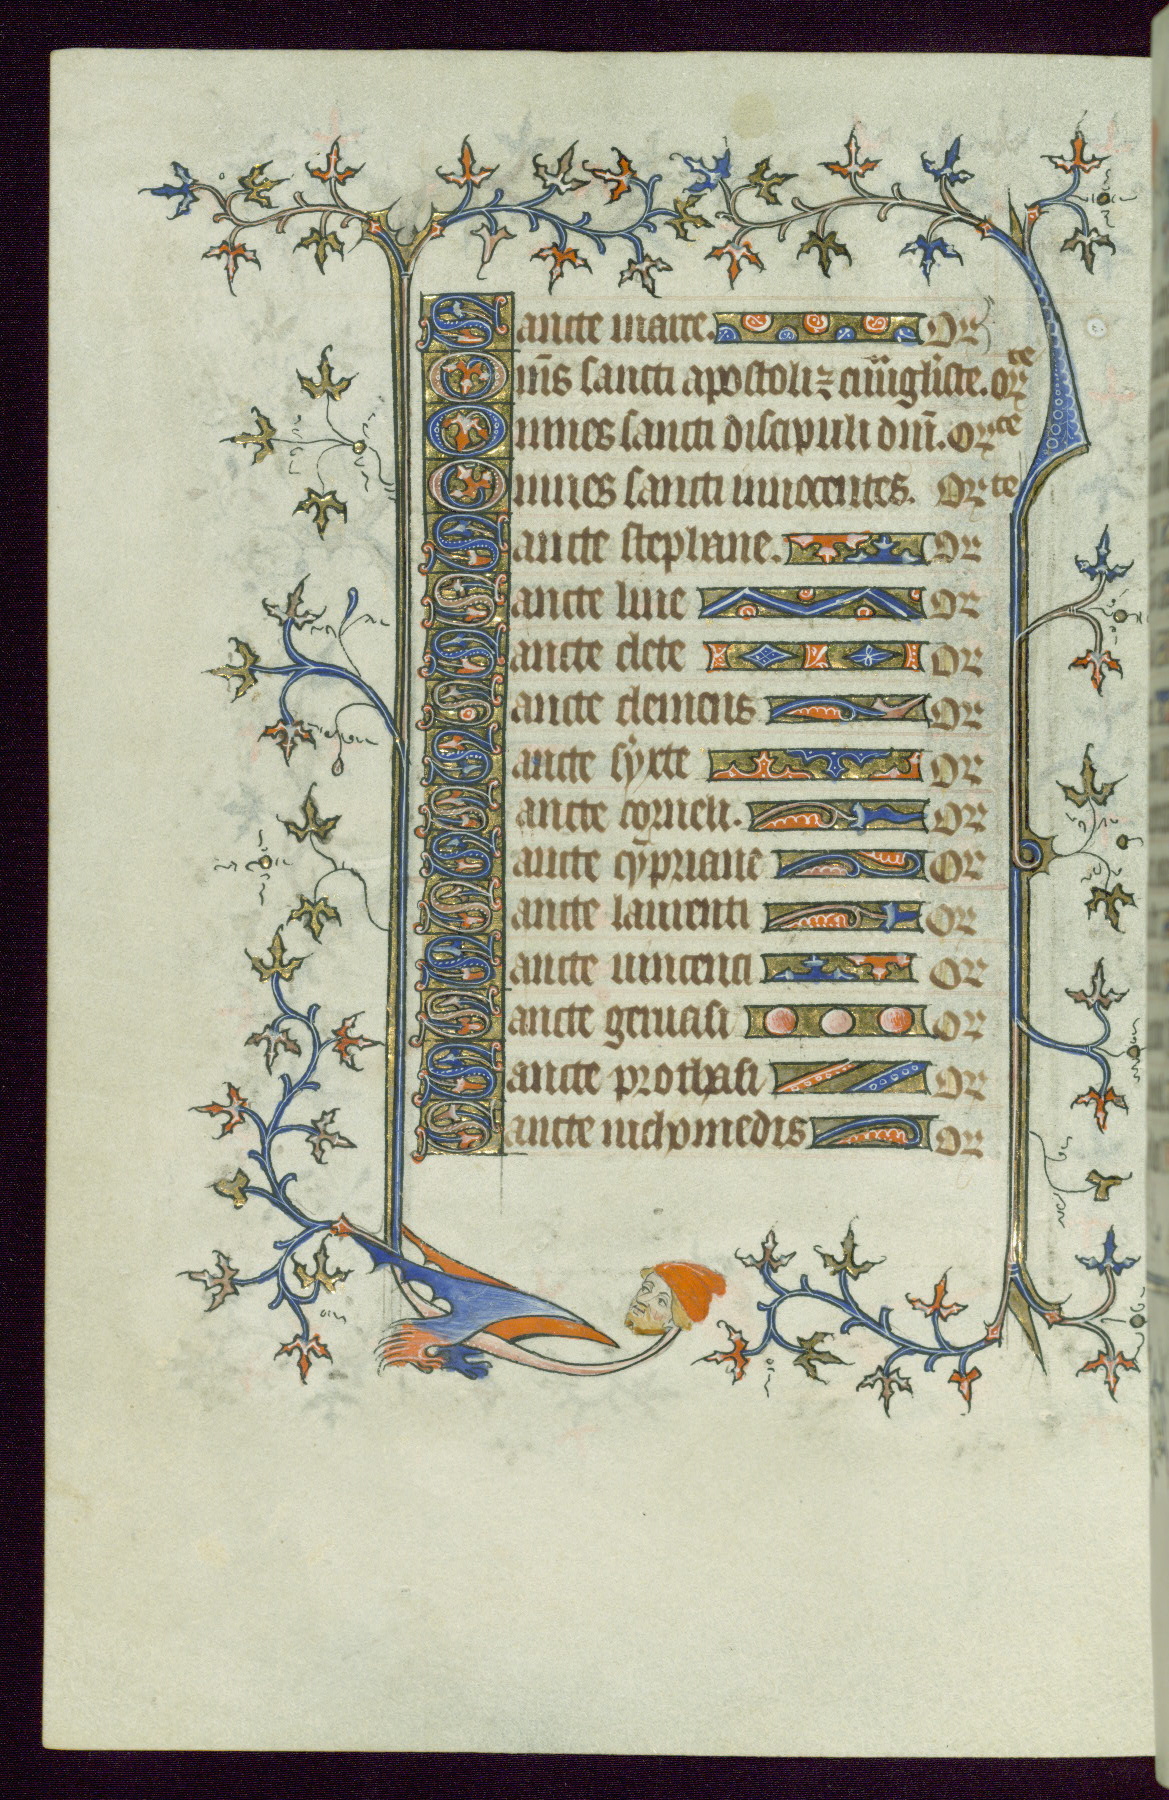 Sancte marce. Or
Om̄s sancti apostoli ⁊ euu̅gliste. orte
Omnes sancti discipuli dn̄i. orte
Omnes sancti innocentes. orte
Sancte stephane. Or
Sancte line Or
Sancte clete Or
Sancte clemens Or
Sancte syxte Or
Sancte corneli. Or
Sancte cypriane Or
Sancte laurenti Or
Sancte uincenti Or
Sancte geruasi Or
Sancte prothasi Or
Sancte nichomedis Or